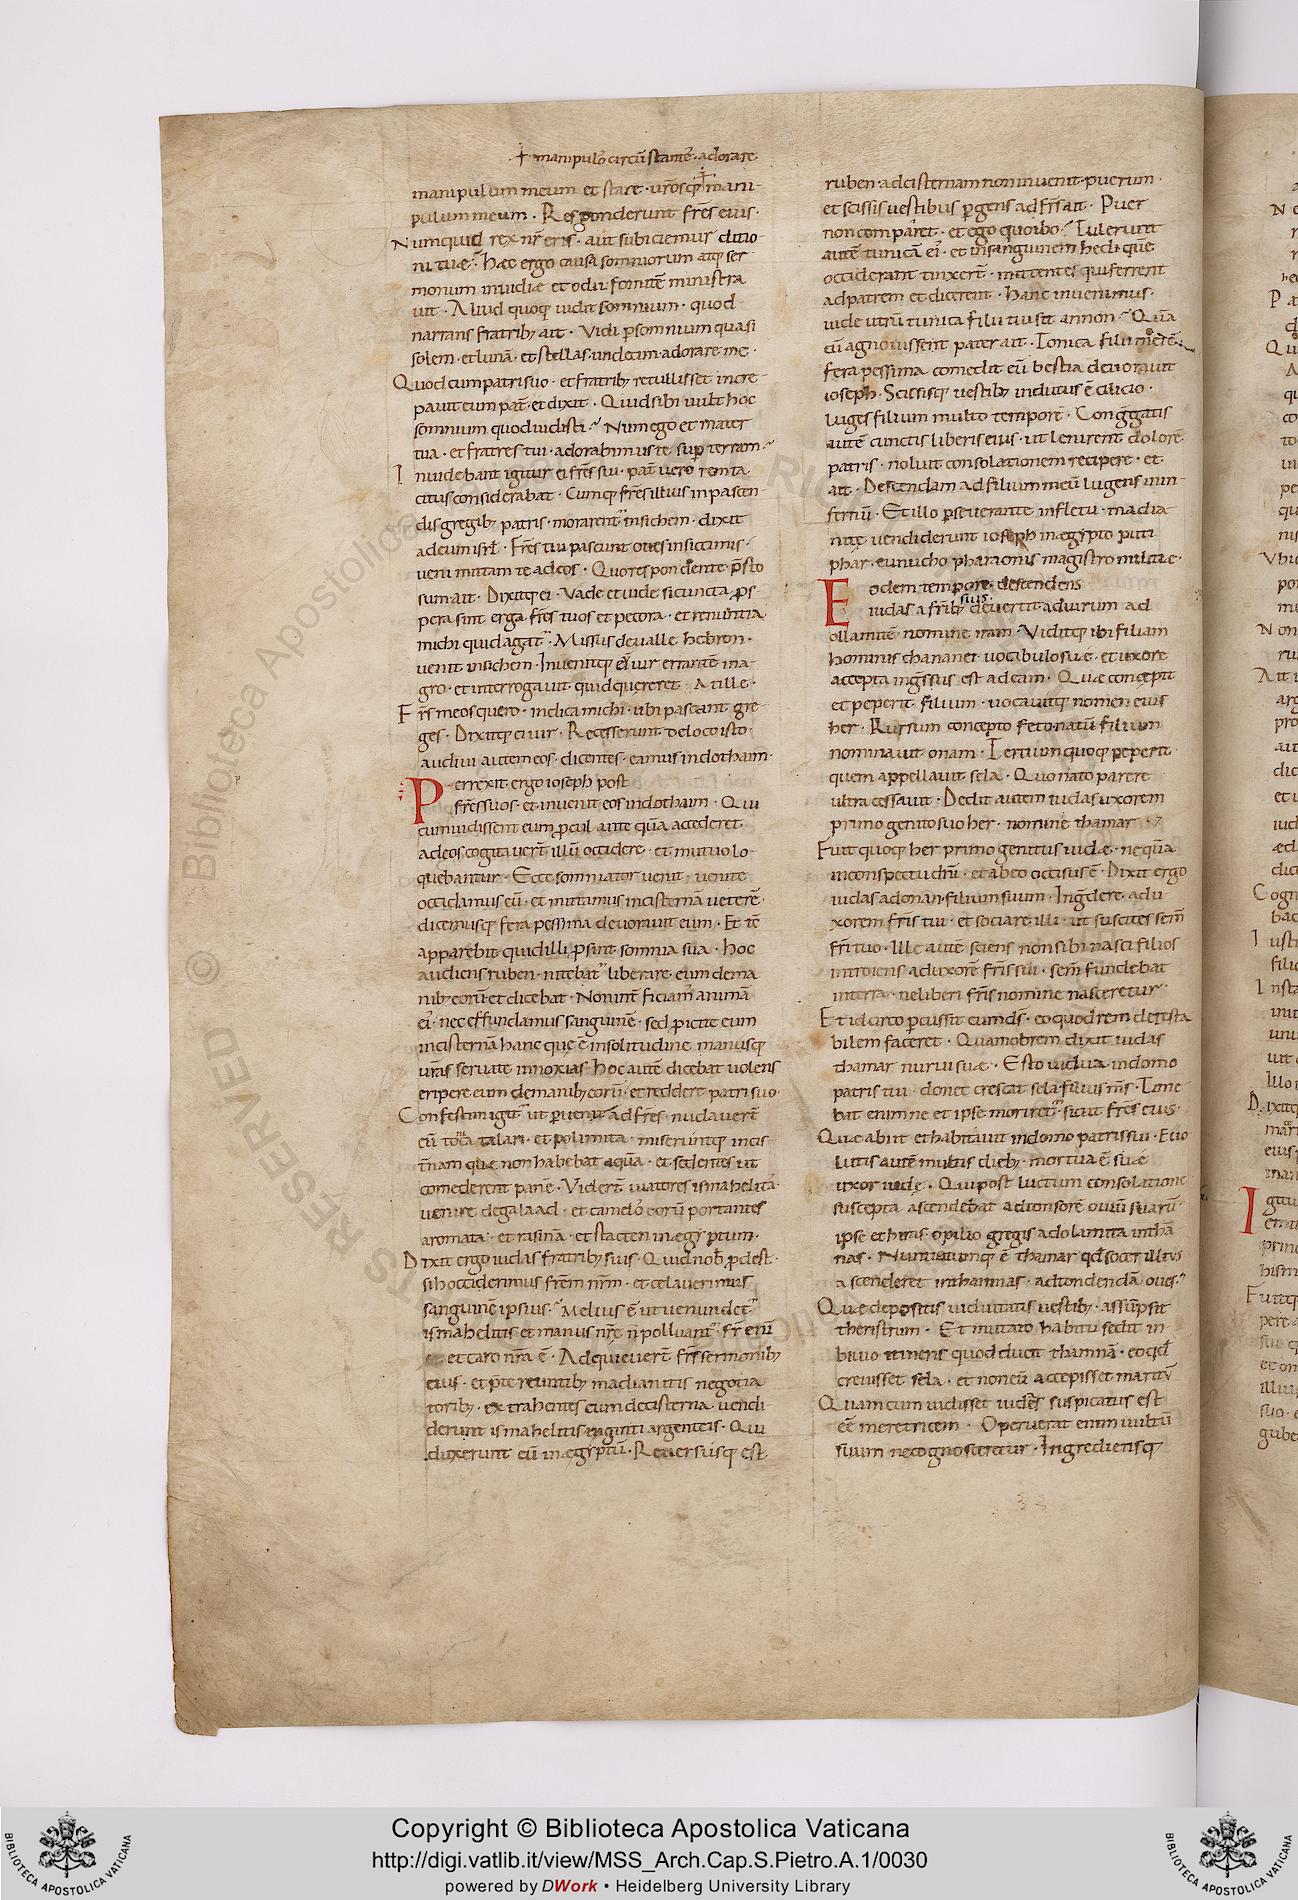 ·ⸯ manipulos circū stantes· adorare·
manipulum meum et stare· urōsq; mani-
pulum meum · Responderunt fr̄es eius·
Numquid rex nr̄ eris· aut subiciemur ditio
ni tuæ· Hæc ergo causa somniorum atq; ser
monum inuidiæ et odii fomitē ministra
uit · Aliud quoq; uidit somnium· quod
narrans fratrib; ait · Vidi p̄ somnium quasi
solem· et lunā· et stellas undecim adorare me·
Quod cum patri suo· et fratrib; retulisset incre-
pauit eum pat̄· et dixit · Quid sibi uult hoc
somnium quod uidisti· Num ego et mater
tua· et fratres tui· adorabimus te sup terram·
Inuidebant igitur ei fr̄es sui· pat̄ uero rem ta
citus considerabat · Cumq; fr̄es illius in pascen-
dis gregib; patris· morarent̄ in sichem· dixit
ad eum isrl̄· Fr̄es tui pascunt oues in sicimis·
ueni mittam te ad eos· Quo respondente· p̄sto
sum ait· Dixitq; ei· Vade et uide si cuncta p̄s-
pera sint erga fr̄es tuos et pecora· et renuntia
michi quid agat̄· Missus de ualle hebron·
uenit in sichem· Inuenitq; eū uir errantē in a-
gro· et interrogauit quid quereret· At ille·
Fr̄s meos quero· indica michi· ubi pascant gre-
ges· Dixitq; ei uir· Recesserunt de loco isto·
audiui autem eos· dicentes· eamus in dothaim·
Perrexit ergo ioseph post
fr̄es suos· et inuenit eos in dothaim· Qui
cum uidissent eum p̄cul ante quā accederet
ad eos cogitauert̄ illū occidere· et mutuo lo-
quebantur· Ecce somniator uenit· uenite
occidamus eū· et mittamus in cisternā ueterē·
dicemusq; fera pessima deuorauit eum· Et tē
apparebit quid illi p̄sint somnia sua· Hoc
audiens ruben· nitebat̄ liberare eum de ma
nib; eorū et dicebat· Non int̄ficiam animā
ei· nec effundamus sanguinē· sed p̄icite eum
in cisternā hanc quę ē in solitudine· manusq;
ur̄as seruate innoxias· Hoc autē dicebat uolens
eripere eum de manib; eorū· et reddere patri suo·
Confestim igit̄ ut p̄uenit ad fr̄es· nudauert̄
eū tonica talari· et polimita· miseruntq; in cis-
t̄nam quæ non habebat aquā· et sedentes ut
comederent panē· Videt̄ uiatores ismahelitas
uenire de galaad· et camelos eorū portantes
aromata· et rasinā· et stacten in ægyptum·
Dixit ergo iudas fratrib; suis· Quid nob̄ p̄dest·
si occiderimus fr̄em nr̄m· et celauerimus
sanguinē ipsius· Melius ē ut uenundet̄
ismahelitis et manus nr̄e n̄ polluant̄· fr̄ enī
et caro nr̄a ē· Adquieuert̄ fr̄s sermonib;
eius· et p̄tereuntib; madianitis negotia
torib;· extrahentes eum de cisterna· uendi-
derunt ismahelitis uiginti argenteis· Qui
duxerunt eū in ægyptū· Reuersusq; est
ruben· ad cisternam non inuenit· puerum·
et scissis uestibus p̄gens ad fr̄s ait· Puer
non comparet· et ego quo ibo· Tulerunt
autē tunicā ei· et in sanguinem hedi· quē
occiderant tinxert̄· mittentes qui ferrent
ad patrem et dicerent· Hanc inuenimus·
uide utrū tunica filii tui sit an non· Quā
cū agnouissent pater ait· Tonica filii mei ē·
fera pessima comedit eū bestia deuorauit
ioseph· Scissisq; uestib; indutus ē cilicio·
luges filium multo temporē· Congregatis
autē cunctis liberis eius· ut lenirent dolorē
patris· noluit consolationem recipere· et
ait· Descendam ad filium meū lugens in in-
fernū· Et illo p̄seuerante in fletu· madia
nitę uendiderunt ioseph in ægypto puti
phar· eunucho pharaonis magistro militiæ·
Eodem tempore· descendens
iudas a frib; suis deuertit ad uirum ad
ollamitē· nomine iram· Viditq; ibi filiam
hominis chananei uocabulo suæ· et uxore
accepta ingr̄essus est ad eam· Quæ concepit
et peperit filium· uocauitq; nomen eius
her· Rursum concepto feto· natū filium
nominauit onam· Tertium quoq; peperit·
quem appellauit sela· Quo nato parere
ultra cessauit· Dedit autem iudas uxorem
primo genito suo her· nomine thamar
Fuit quoq; her primogenitus iudæ· nequā
in conspectu dn̄i· et ab eo occisus ē· Dixit ergo
iudas ad onan· filium suum· Ingr̄dere ad u
xorem fr̄is tui· et sociare illi· ut suscites sem̄
fr̄i tuo· Ille autē sciens non sibi nasci filios
introiens ad uxorē fr̄is sui· sem̄ fundebat
in terra· ne liberi fr̄is nomine nasceretur·
Et idcirco p̄cussit eum ds̄· eo quod rem detesta
bilem faceret· Quamobrem dixit iudas
thamar nurui suæ· Esto uidua· in domo
patris tui· donec crescat sela filius m̄s· Time
bat enim ne et ipse moriret̄· sicut fr̄es eius·
Quæ abiit et habitauit in domo patris sui· Euo
lutis autē multis dieb;· mortua ē suæ
uxor iudę· Qui post luctum consolatione
suscepta ascendebat ad tonsorē ouiū suarū·
ipse et hiras· opilio gregis adolamita in tham
nas· Nuntiatumq; ē thamar qd̄ socer illius
ascenderet in thamnas· ad tondendā oues·
Quæ depositis uiduitatis uestib;· assūpsit
theristrum· Et mutato habitu sedit in
biuio itineris quod ducit thamnā· eo qd̄
creuisset sela· et non eū accepisset maritū
Quam cum uidisset iudas suspicatus est
eē meretricem· Operuerat enim uultū
suum ne cognosceretur· Ingrediensq;
Copyright © Biblioteca Apostolica Vaticana
http://digi.vatlib.it/view/MSS_Arch.Cap.S.Pietro.A.1/0030
powered by DWork • Heidelberg University Library